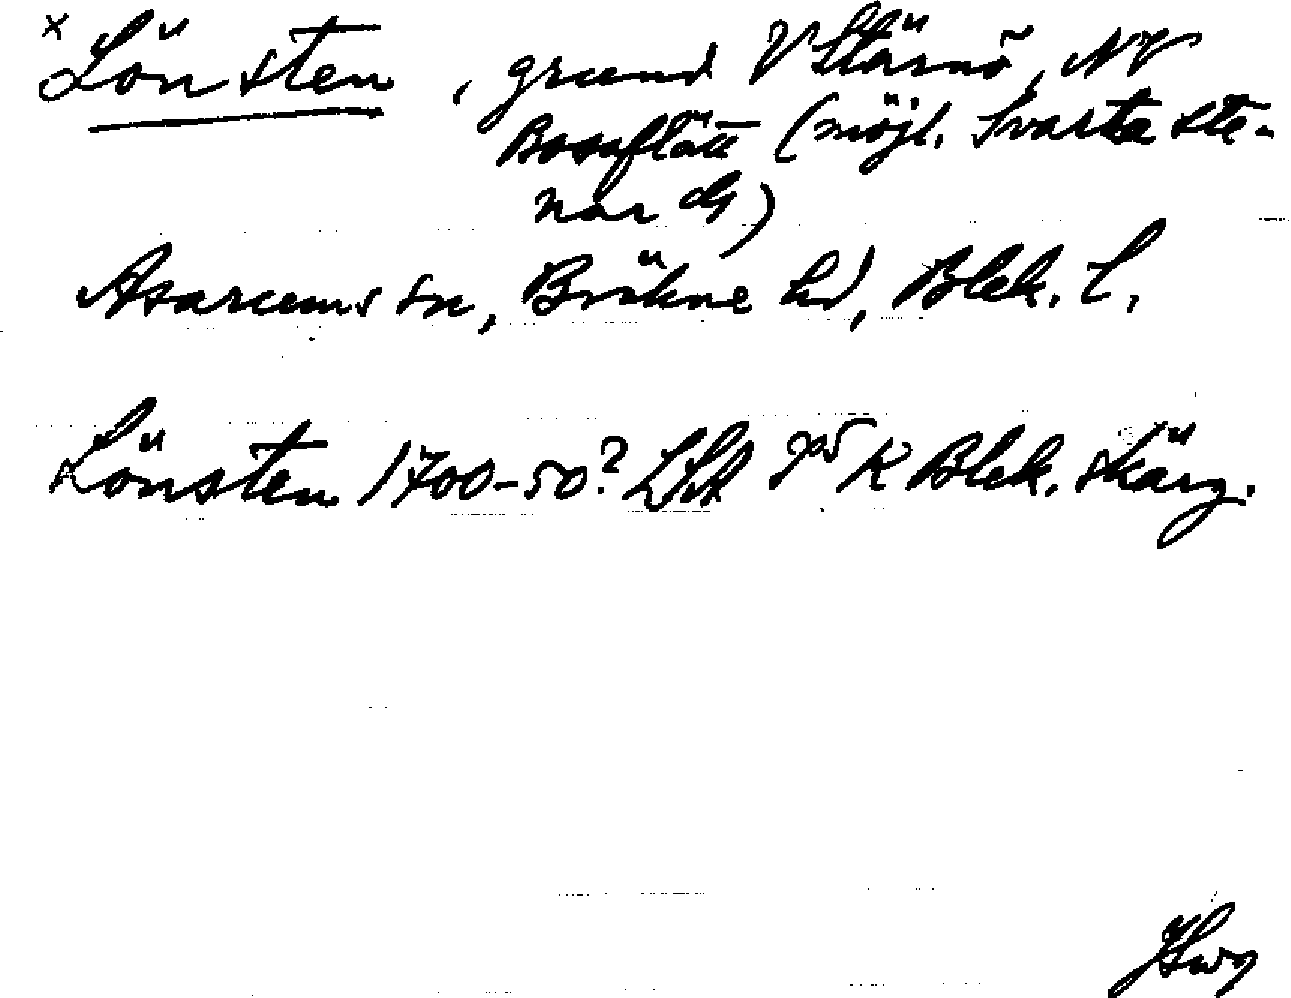 x Lönsten, grund V Stärnö, NV
Bossflätt (möjl. Svarta ste-
nar G)
Asarums sn, Bräkne hd, Blek. l.
Lönsten 1700-50? LSA K Blek. skärg.